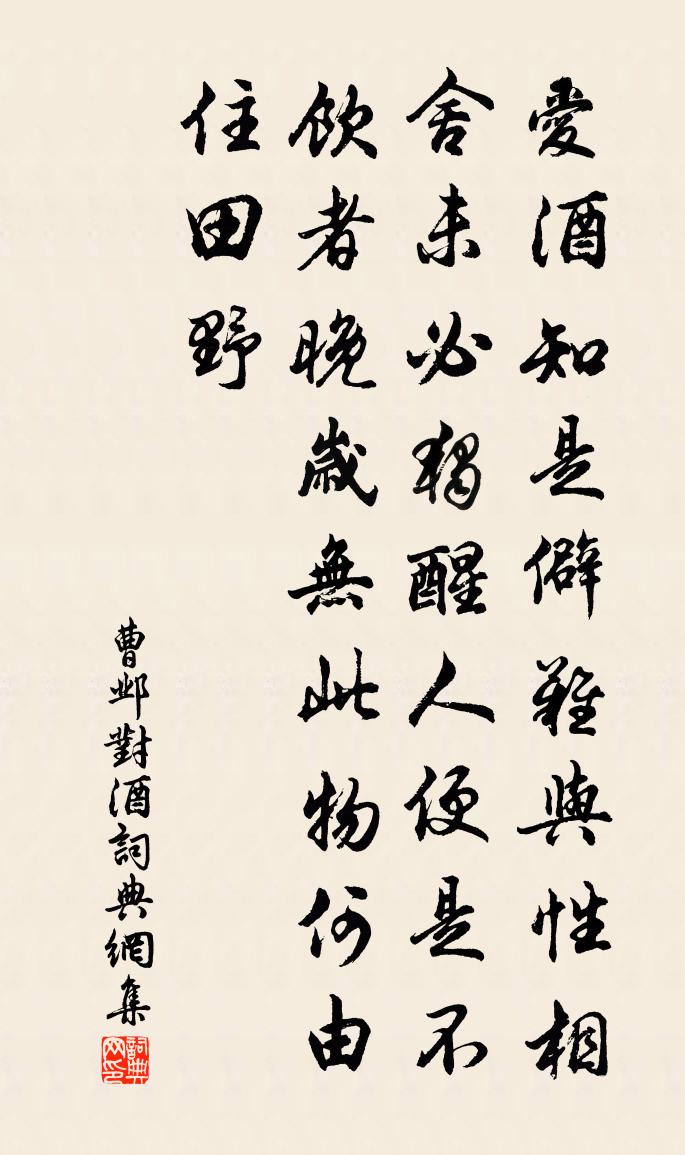 愛酒知是僻難與性相
舍未必獨醒人便是不
飲者晚歲無此物何由
住田野
曹邺對酒詞典網集
詞典网印